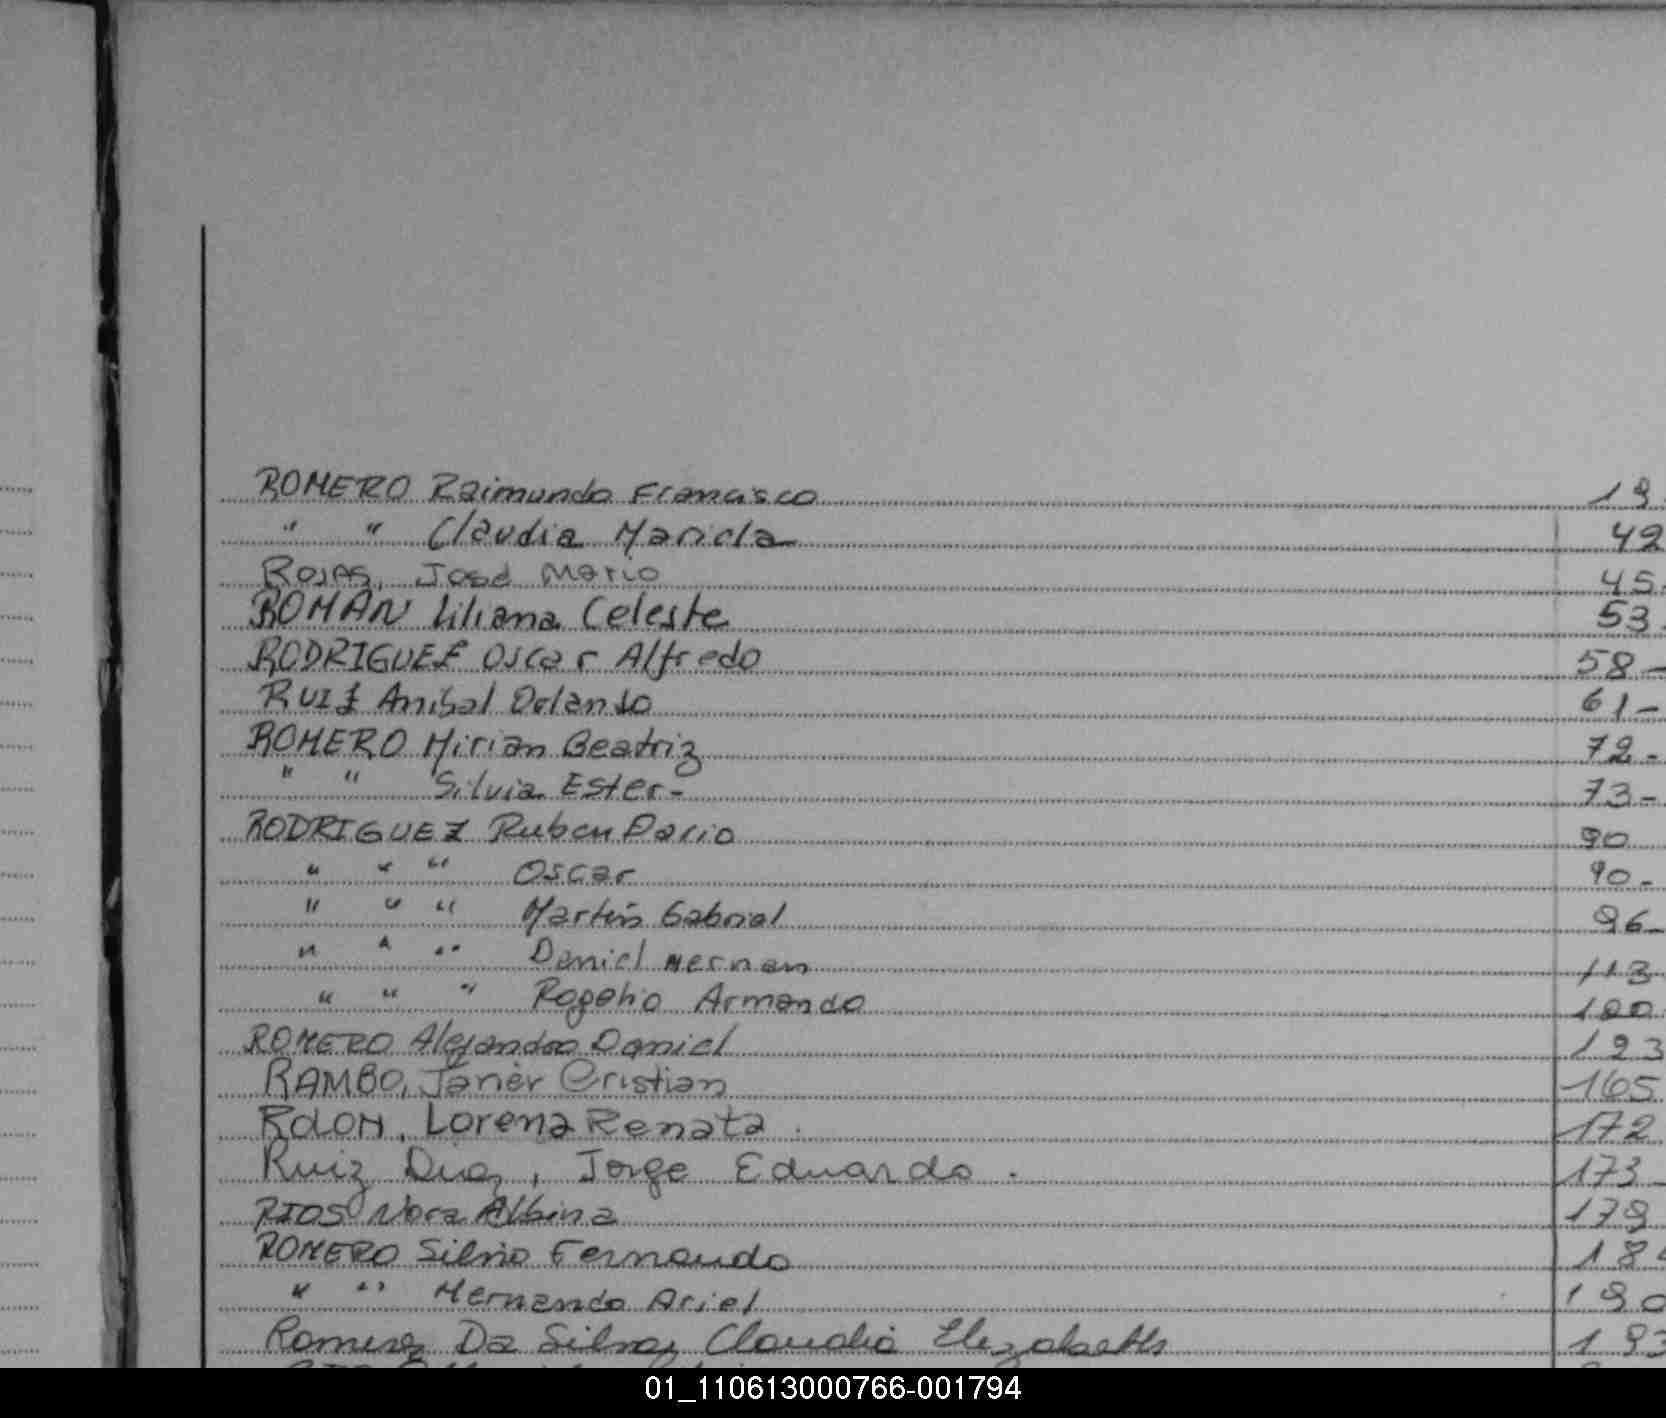 ROMERO Raimundo Francisco 19
" " Claudia Mariela 42
Rojas, José Mario 45-
ROMAN Liliana Celeste 53-
RODRIGUEZ Oscar Alfredo 58-
RUIZ Anibal Orlando 61-
ROMERO Mirian Beatriz 72-
" " Silvia Ester- 73-
RODRIGUEZ Ruben Dario 90
" " " Oscar 90-
" " " Martin Gabriel 96-
" " " Daniel Hernan 113
" " " Rogelio Armando
ROMERO Alejandro Daniel 123
RAMBO, Javier Cristian 165
ROLON, Lorena Renata. 172
Ruiz Diaz, Jorge Eduardo. 173-
RIOS Nora Albina 179
ROMERO Silvio Fernando 18
" " Hernando Ariel 190
Ramirez Da Silva, Claudia Elizabeth 193
01_110613000766-001794